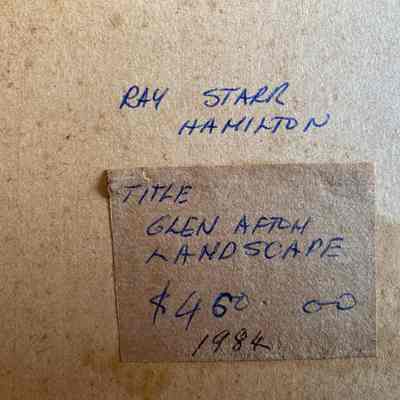 RAY STARR
HAMILTON
TITLE
GLEN AFTON
LANDSCAPE
$460.00
1984